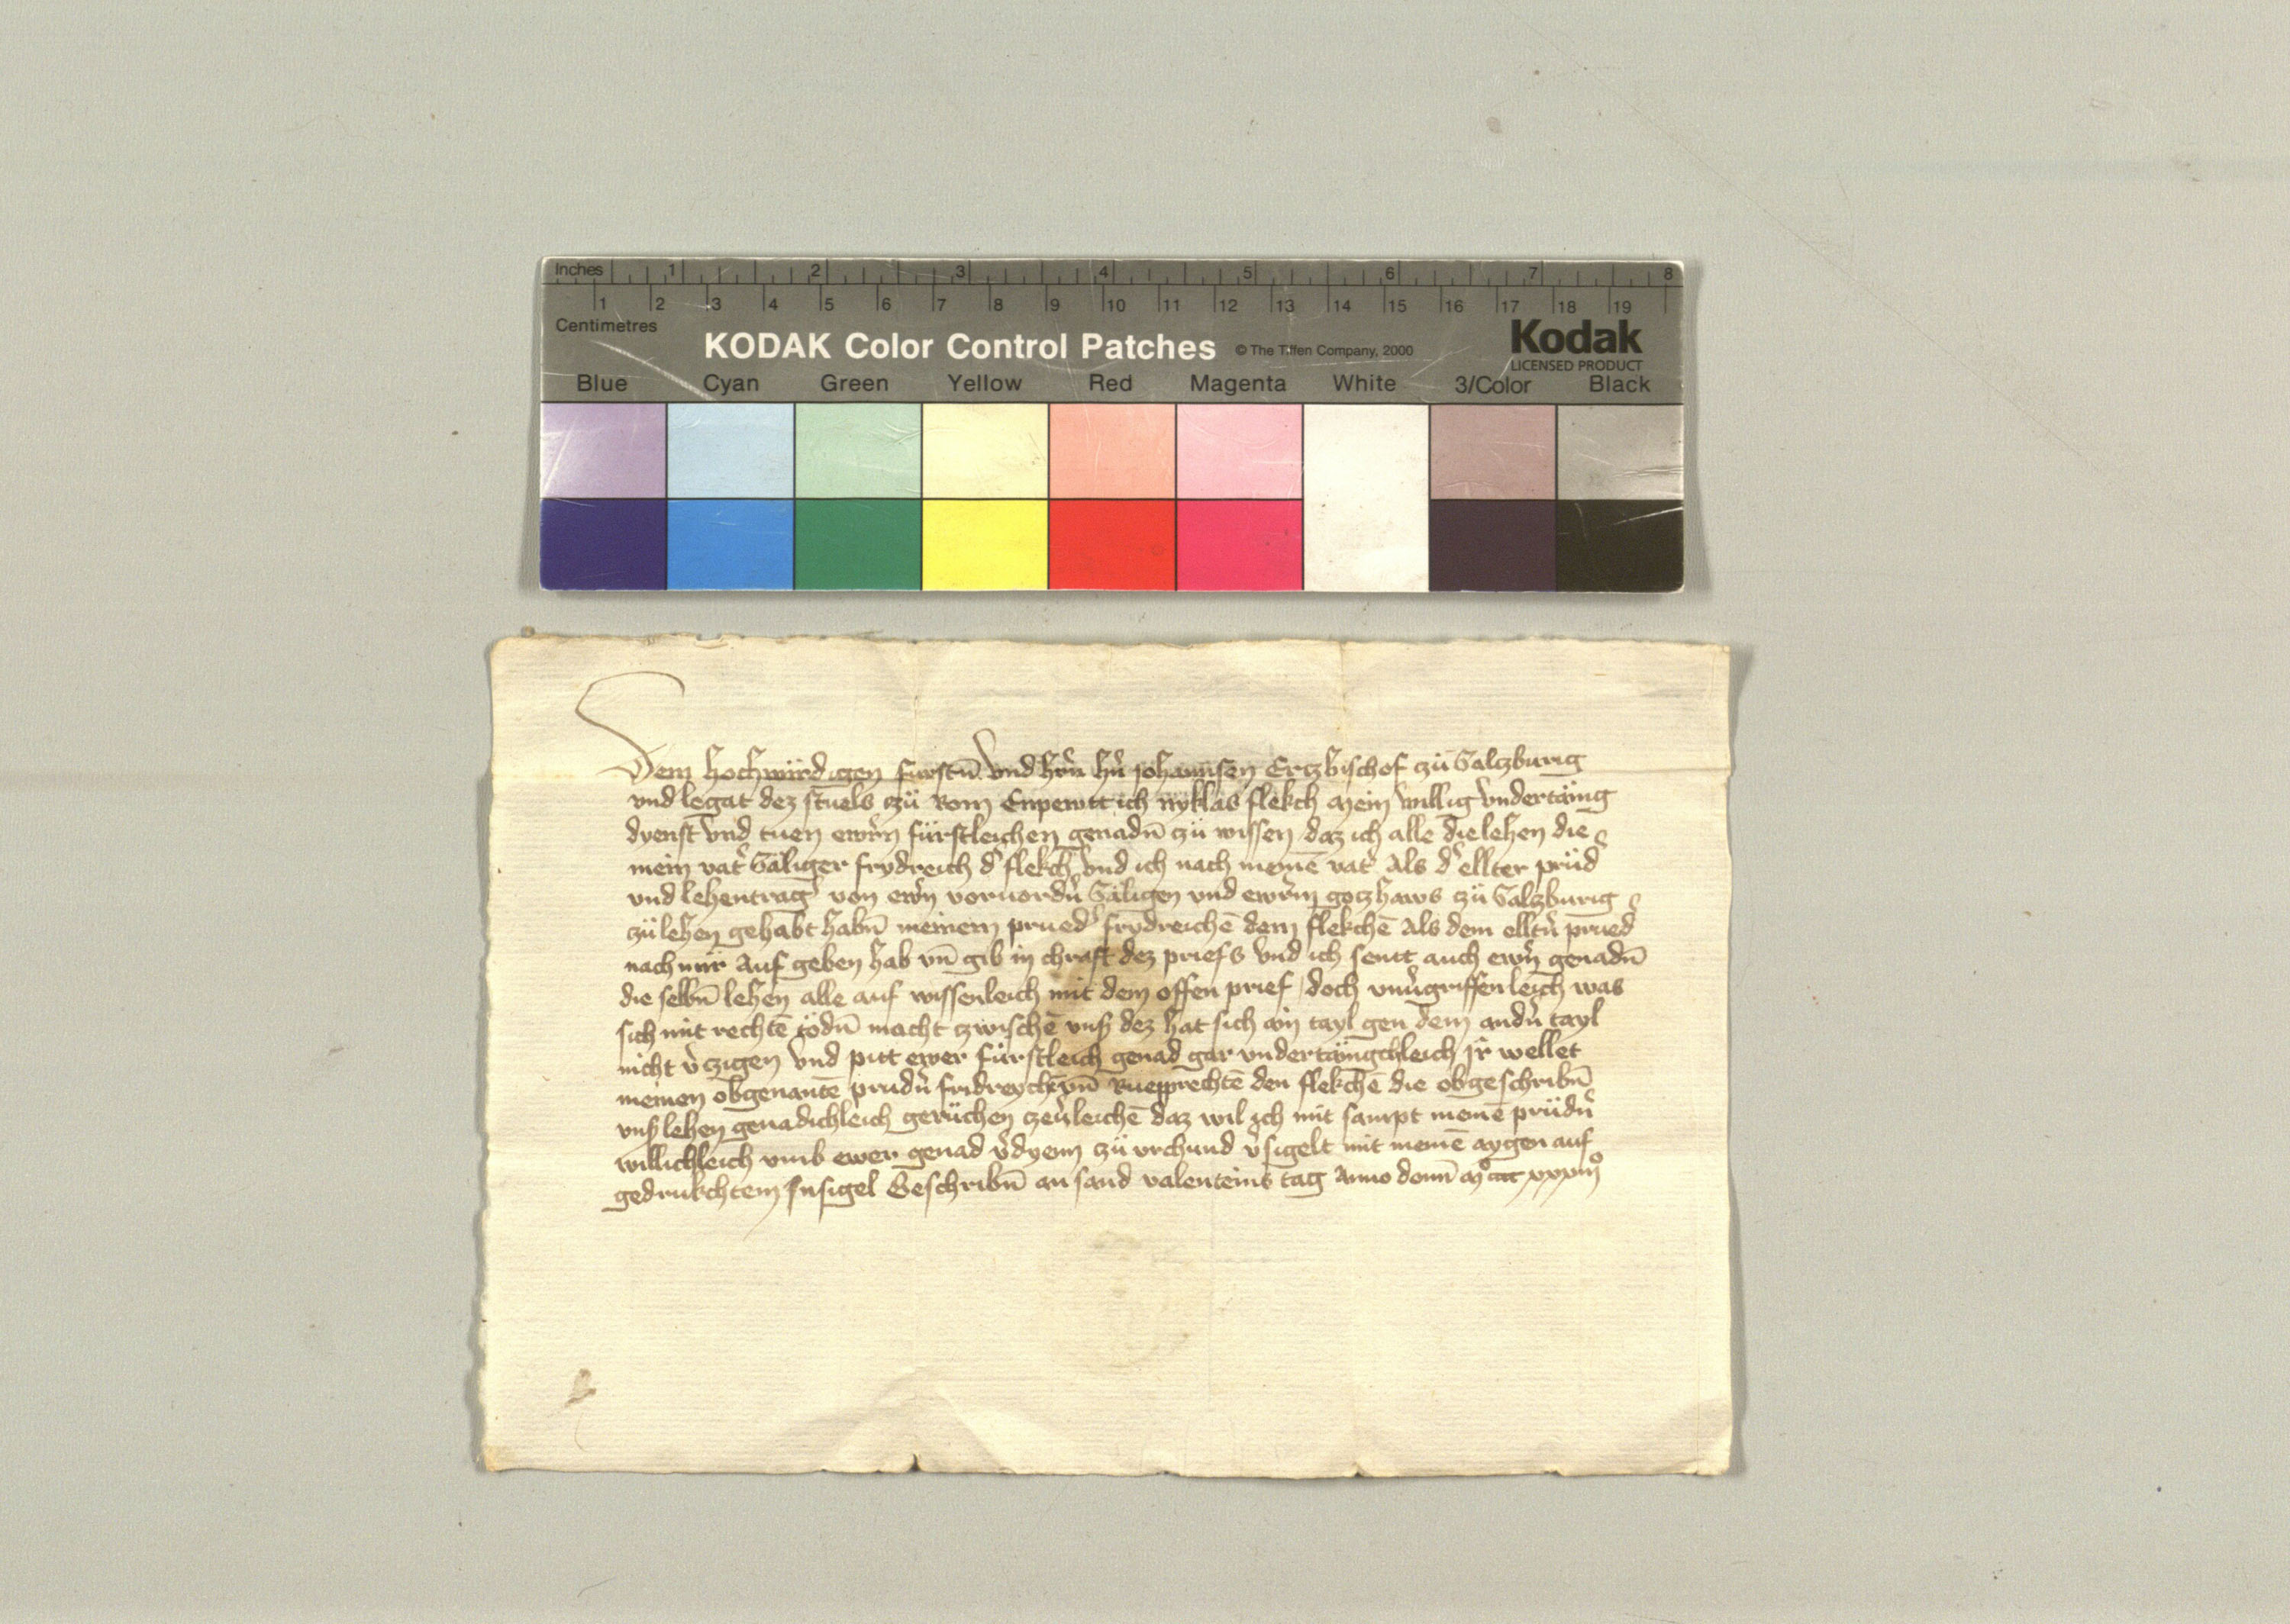 Inches 1 2 3 4 5 6 7 8
1 2 3 4 5 6 7 8 9 10 11 12 13 14 15 16 17 18 19
Centimetres
KODAK Color Control Patches © The Tiffen Company, 2000 Kodak
LICENSED PRODUCT
Blue Cyan Green Yellow Red Magenta White 3/Color Black
Dem hochwirdigen furstn̄ vnd hr̄n hn̄ Johannsen Ertzbischof zü Salzburig
vnd legat dez stuels zü Rom Enpewtt ich nyklas flekch mein willig vndertäing
dyenst vnd tuen ewrm̄ fürstleichen genadn̄ zü wissen daz ich alle die lehen die
mein vat̉ Säliger frydreich d̉ flekch vnd ich nach meinē vat̉ Als d̉ ellter prüd̉
vnd lehentrag̉ von ewn̉ voruordn̉ Säligen vnd ewrm̉ gotzhaws zü Salzburig
zü lehen gehabt habn̄ meinem prued̉ frydreichē dem flekchē Als dem elltn̉ prued̉
nach mir Auf geben hab vn̄ gib in chraft dez priefs vnd ich sentt auch ewrn̉ genadn̄
die selbn̄ lehen alle auf wissenleich mit dem offen prief doch vnủgriffenleich was
sich mit rechtē tödn̄ macht zwischē vnß dez hat sich ain tayl gen dem andn̉ tayl
nicht v̉czigen vnd pitt ewer fürstleich genad gar vndertäingchleich Jr wellet
meinen obgenantē prudn̉ fridreychē vn̄ Ruepprechtē den flekchē die obgeschribn̄
vnß lehen genadichleich gerüchen zeủleichē daz wil ich mit sampt meinē prüdn̉
willichleich vmb ewer genad v̉dyenn zü vrchund v̉sigelt mit meinē aygen auf
gedrukchtem Insigel Geschribn̄ an sand valenteins tag Anno domī